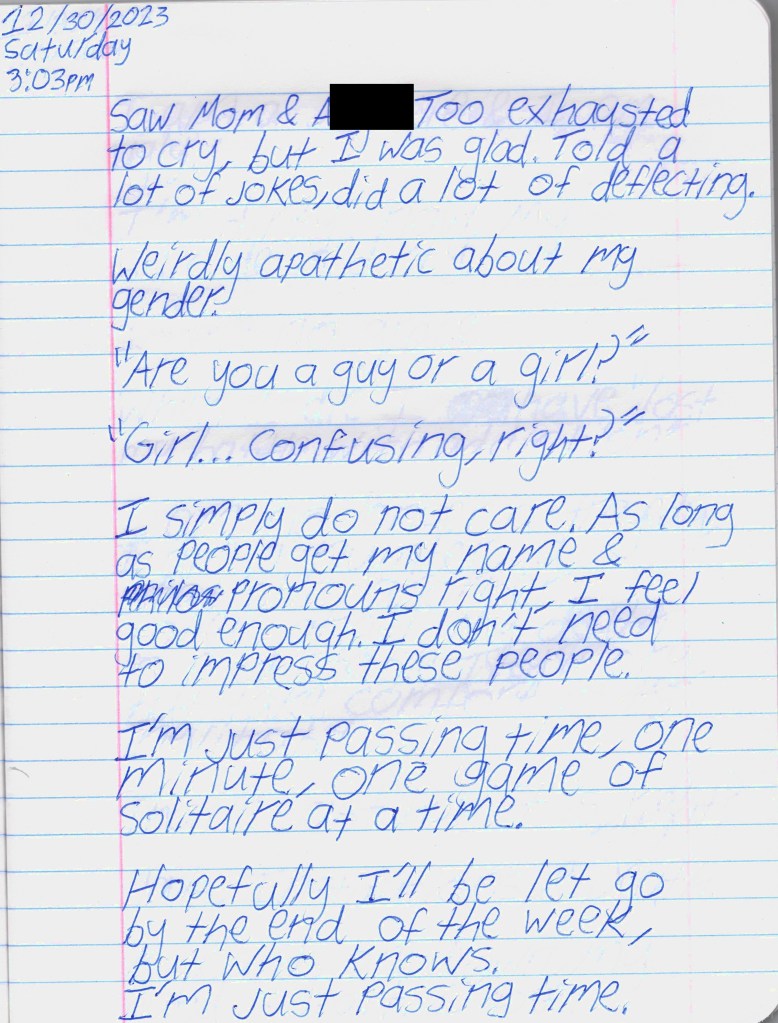 12/30/2023
Saturday
3:03pm
Saw Mom & A Too exhausted
to cry, but I was glad. Told a
lot of jokes, did a lot of deflecting.
Weirdly apathetic about my
gender.
"Are you a guy or a girl?"
"Girl... Confusing, right?"
I simply do not care. As long
as people get my name &
pronouns right, I feel
good enough. I don't need
to impress these people.
I'm just passing time, one
minute, one game of
solitaire at a time.
Hopefully I'll be let go
by the end of the week,
but who knows.
I'm just passing time.